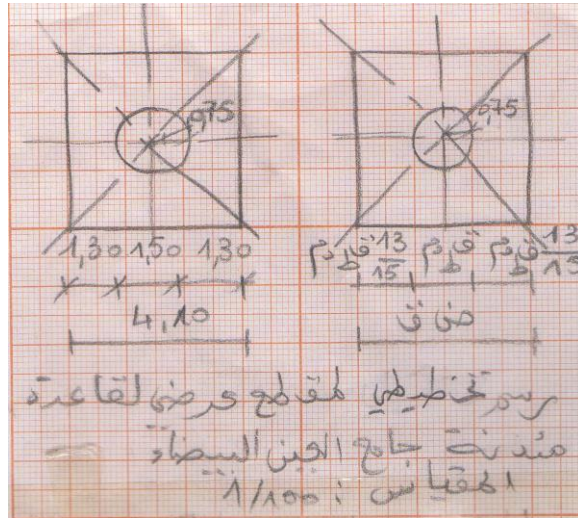 0,75
0,75
1,30 1,50 1,30
13/15 ق د م ق د م 13/15 ق د م
4,10
ض ق
رسم تخطيطي لمقطع عرضي لقاعدة
مئذنة جامع العين البيضاء
المقياس : 1/100